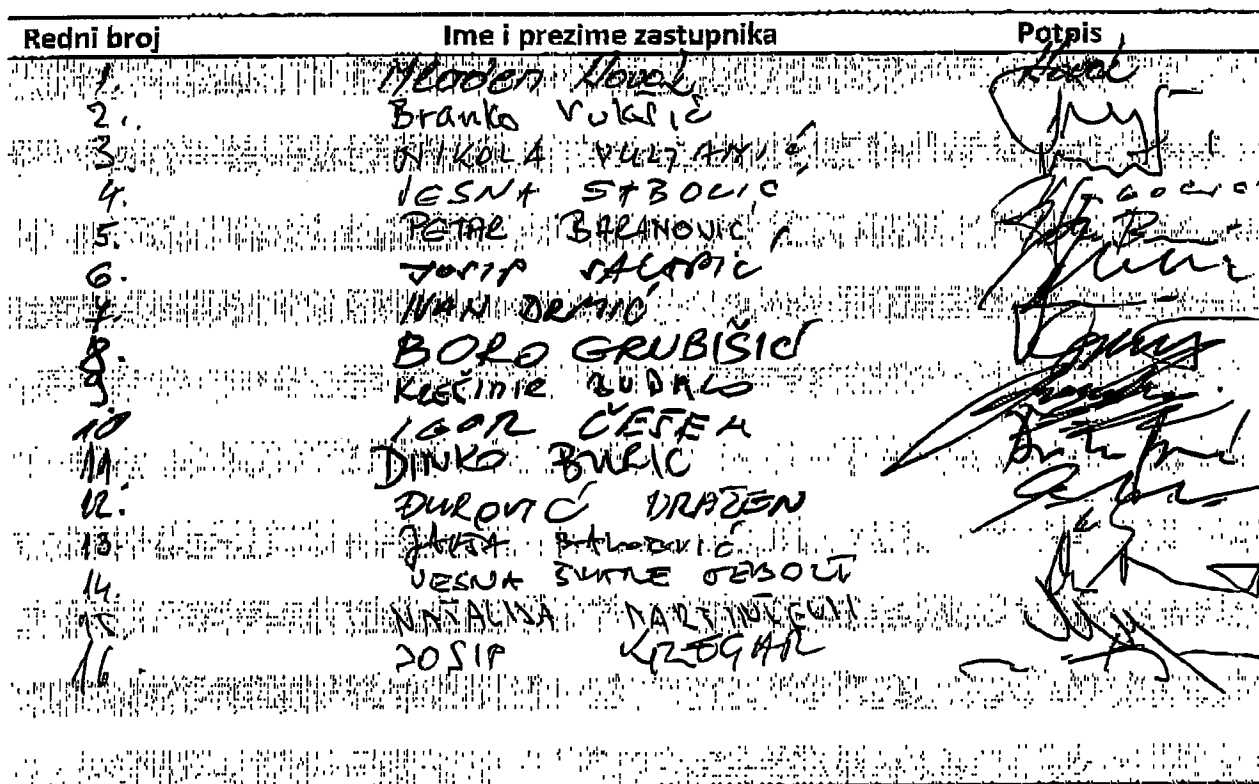 Redni broj Ime i prezime zastupnika Potpis
1. Mladen Novak Novak
2. Branko Vukšić
3. NIKOLA VULJANIĆ
4. VESNA SABOLIĆ
5. PETAR BARANOVIĆ
6. JOSIP SALAPIĆ
7. IVAN DRMIĆ
8. BORO GRUBIŠIĆ
9. KREŠIMIR BUBALO
10 IGOR ČEŠEK
11. DINKO BURIĆ
12. ĐUROVIĆ DRAŽEN
13. JAKŠA BALOEVIĆ
14. VESNA ŠKARE OŽBOLT
15. NATALIJA MARTINČEVIĆ
16. JOSIP KREGAR